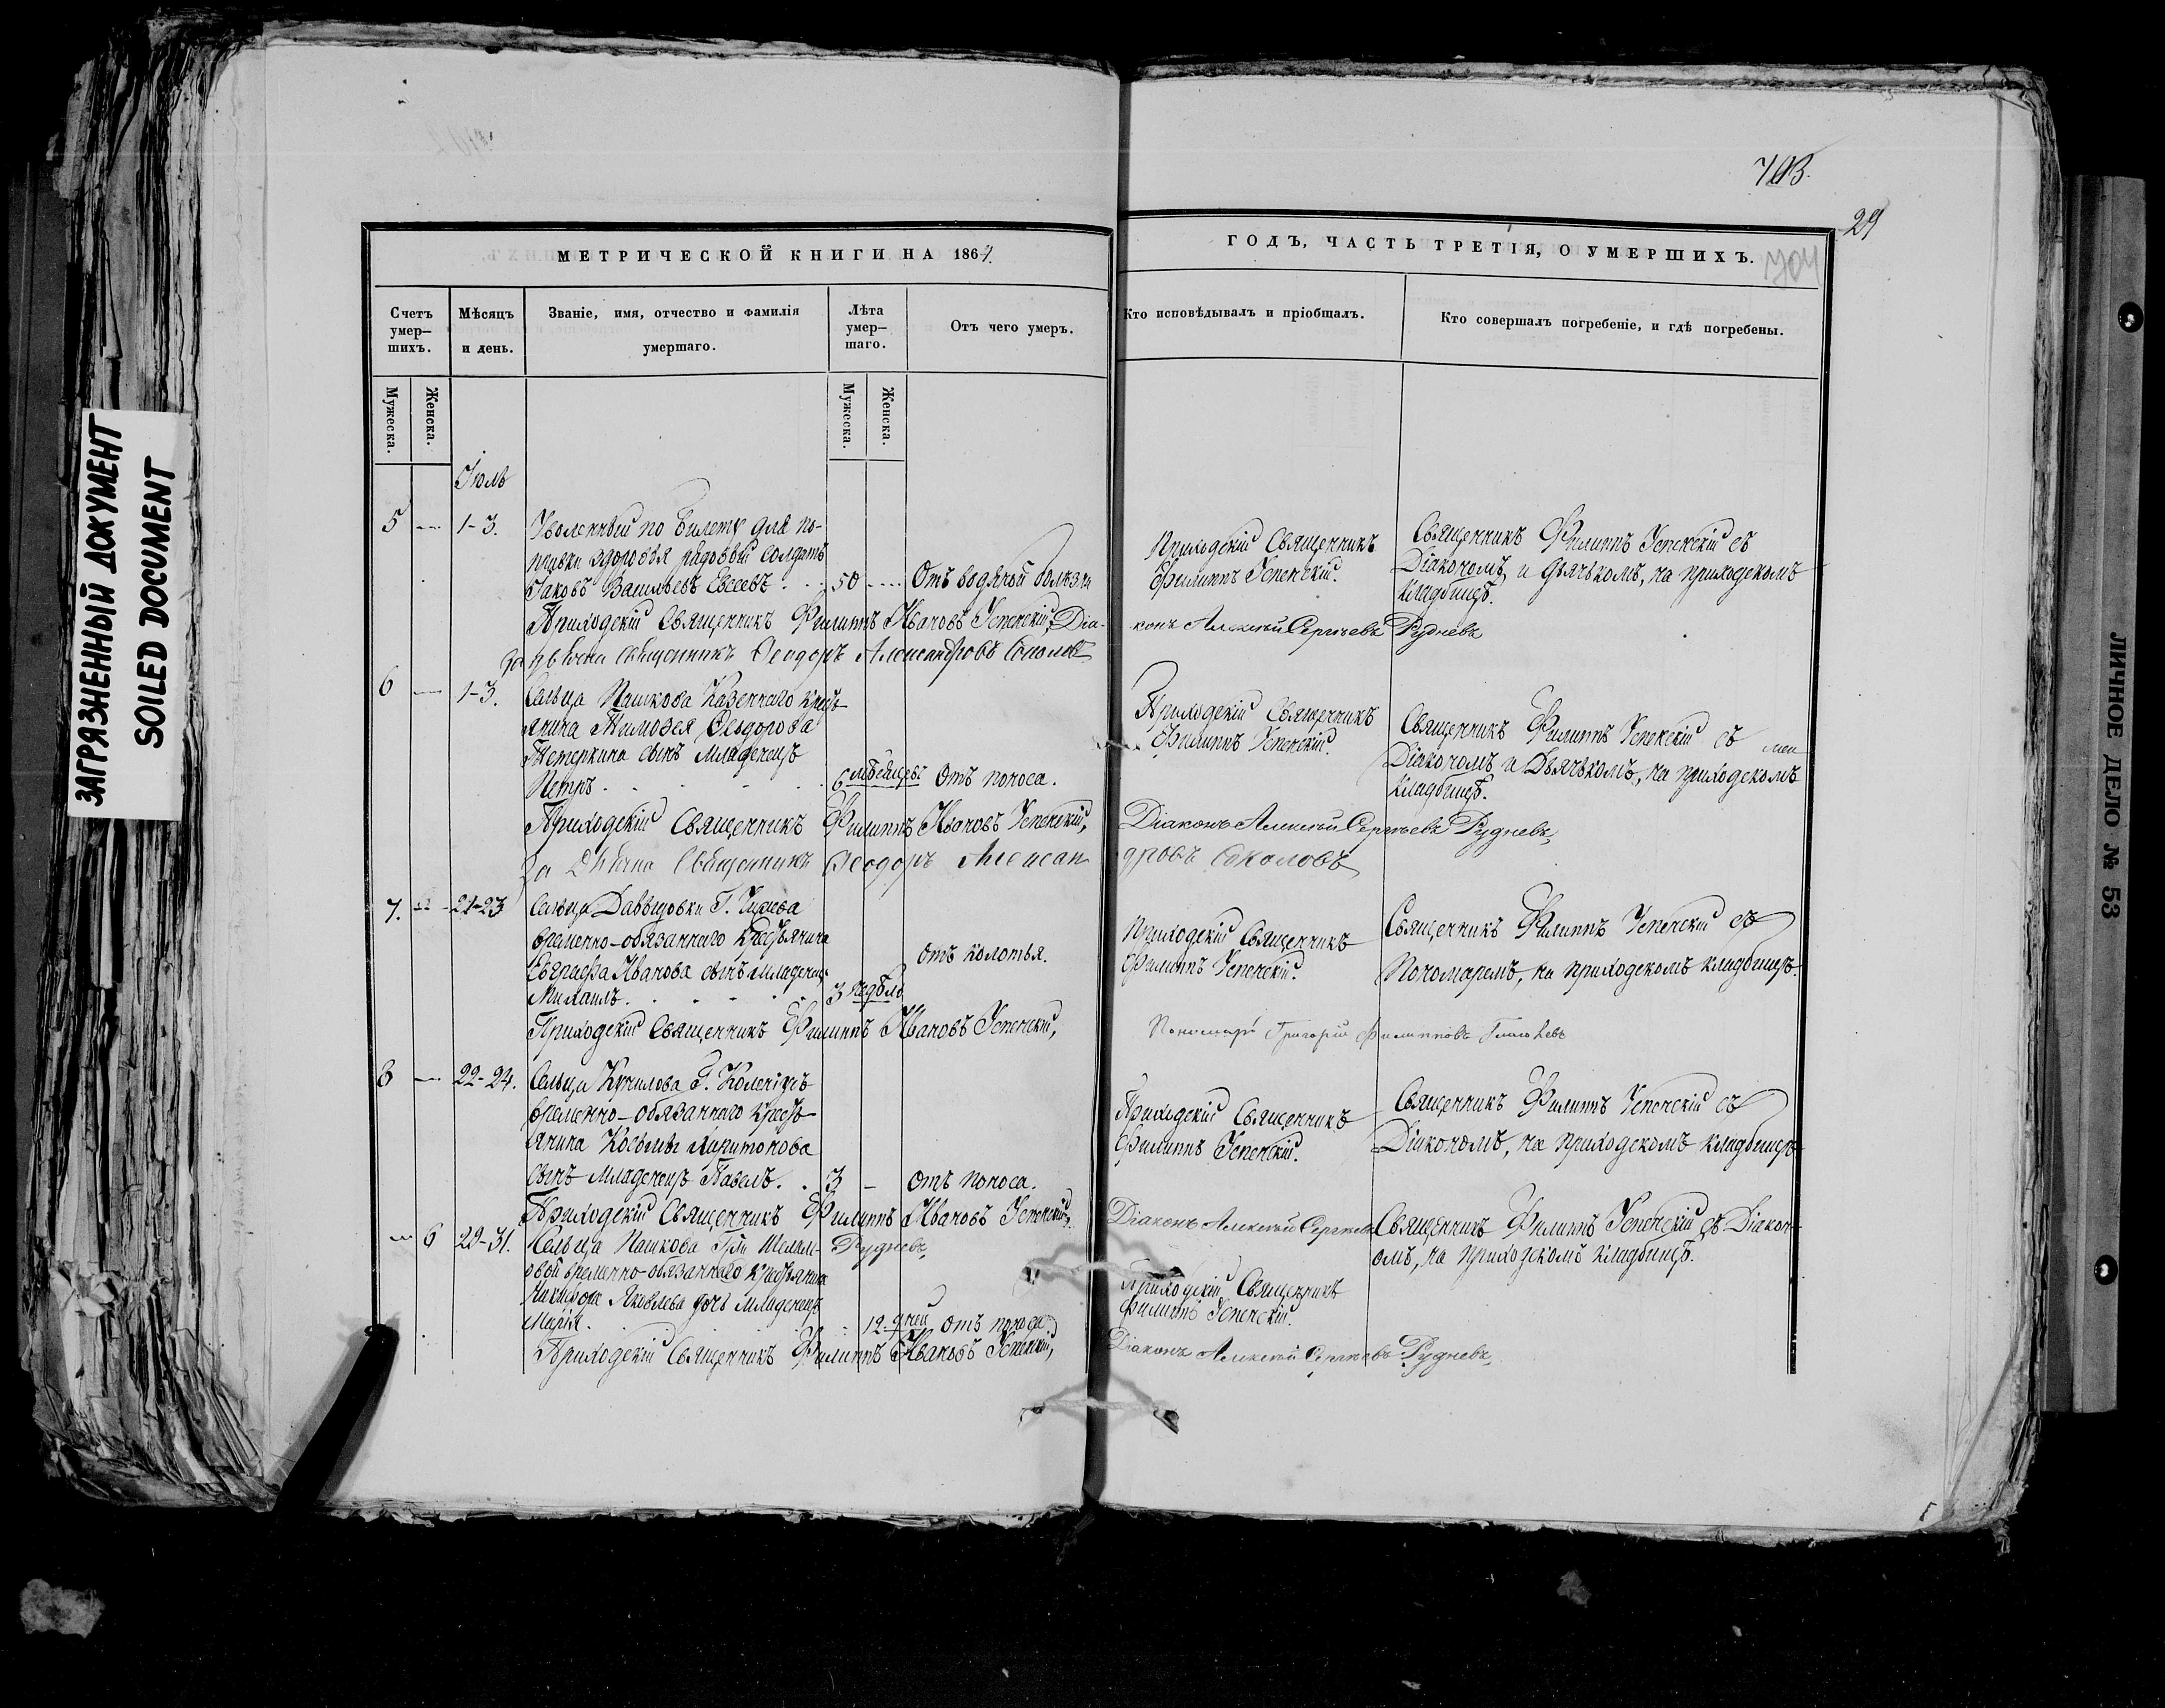 ЗАГРЯЗНЕННЫЙ ДОКУМЕНТ
SOILED DOCUMENT
703.
29
704
МЕТРИЧЕСКОЙ КНИГИ НА 1864.
ГОДЪ, ЧАСТЬ ТРЕТІЯ, О УМЕРШИХЪ.
Счетъ умер–шихъ.
Мѣсяцъ и день.
Званіе, имя, отчество и фамилія умершаго.
Лѣта умер–шаго.
Отъ чего умеръ.
Кто исповѣдывалъ и пріобщалъ.
Кто совершалъ погребеніе, и гдѣ погребены.
Мужеска.
Женска.
Мужеска.
Женска.
Іюль
5 — 1-3. Уволенный по билету для по-
правки здоровья рядовой солдатъ
Іаковъ Васильевъ Евсеевъ . . . 50 — Отъ водяной болѣзни
Приходскій Священникъ
Филиппъ Успенскій.
Священникъ Филиппъ Успенскій съ
Діакономъ и Дьячькомъ, на приходскомъ
кладбищѣ.
Приходскій Священникъ Филиппъ Ивановъ Успенскій, Діа-
конъ Алексѣй Сергѣевъ Рудневъ
За Дьячка Священникъ Ѳеодоръ Александровъ Соколовъ
6 — 1-3. Сельца Пашкова Казеннаго кресть-
янина Тимоѳея Ѳеодорова
Тетеркина сынъ младенецъ
Петръ . . . . 6 мѣсяцевъ Отъ поноса.
Приходскій Священникъ
Филиппъ Успенскій.
Священникъ Филиппъ Успенскій съ
Діакономъ и Дьячькомъ, на приходскомъ
кладбищѣ.
Приходскій Священникъ Филиппъ Ивановъ Успенскій,
Діаконъ Алексѣй Сергѣевъ Рудневъ,
За Дьячка Священникъ Ѳеодоръ Алексан
дровъ Соколовъ
7. — 21-23 Сельца Давыдовки Г.
временно-обязаннаго крестьянина
Евграфа Иванова сынъ младенецъ
Михаилъ . . . . 3 недѣль
отъ колотья.
Приходскій Священникъ
Филиппъ Успенскій.
Священникъ Филиппъ Успенскій съ
Пономаремъ, на приходскомъ кладбищѣ.
Приходскій Священникъ Филиппъ Ивановъ Успенскій,
Пономарь Григорій Филипповъ
8 — 22-24. Сельца Г.
временно-обязаннаго кресть-
янина Косьмы Харитонова
сынъ младенецъ Павелъ . . 3 — отъ поноса.
Приходскій Священникъ
Филиппъ Успенскій.
Священникъ Филиппъ Успенскій съ
Діакономъ, на приходскомъ кладбищѣ
Приходскій Священникъ Филиппъ Ивановъ Успенскій,
Діаконъ Алексѣй Сергѣевъ
Рудневъ,
— 6 29-31. Сельца Пашкова Г-жи
овой временно-обязаннаго крестьянина
Никифора Яковлева дочь младенецъ
Марія . . . 12 дней отъ поноса
Приходскій Священникъ
Филиппъ Успенскій.
Священникъ Филиппъ Успенскій съ Діакон-
омъ, на приходскомъ кладбищѣ.
Приходскій Священникъ Филиппъ Ивановъ Успенскій,
Діаконъ Алексѣй Сергѣевъ Рудневъ,
ЛИЧНОЕ ДЕЛО № 53